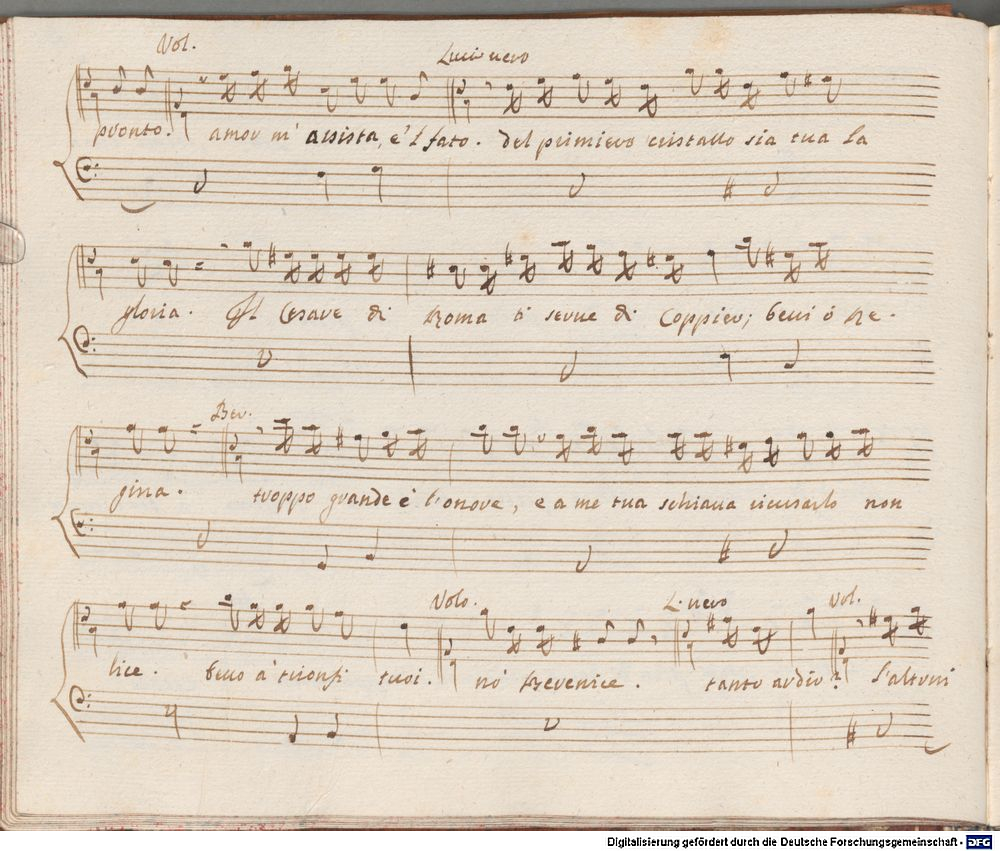 Vol. Lucio vero
pronto. amor m'assista, e'l fato. del primiero cristallo sia tua la
gloria. Il Cesare di Roma ti serue di Coppier; beui ò Re-
Ber.
gina. troppo grande è l'onore, e a me tua schiaua ricusarlo non
Volo. L. vero Vol.
lice. beuo a' trionfi tuoi. nò Berenice. tanto ardir? l'altrui
Digitalisierung gefördert durch die Deutsche Forschungsgemeinschaft - DFG